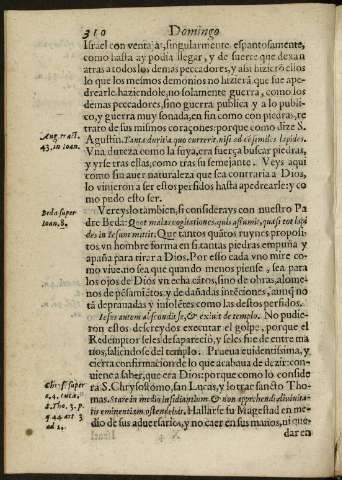 310 Domingo
Israel con ventaja, singularmente espantosamente,
como hasta ay podia llegar, y de suerte que dexan
atras a todos los demas peccadores, y assi hizierō ellos
lo que los mesmos demonios no hizierā, que fue ape-
drearle, haziendole, no solamente guerra, como los
demas peccadores, sino guerra publica y a lo publi-
co, y guerra muy sonada, en fin como con piedras, re
trato de sus mismos coraçones: porque como dize S.
Aug. tract.
43. in Ioan.
Agustin. Tanta duritia quo curreret nisi ad cōsimiles lapides.
Vna dureza como la suya, era fuerça buscar piedras,
y yrse tras ellas, como tras su semejante. Veys aqui
como sin auer naturaleza que sea contraria a Dios,
lo vinieron a ser estos perfidos hasta apedrearle: y co
mo pudo esto ser.
Vereyslo tambien, si considerays con nuestro Pa
Beda super
Ioan. 8.
dre Beda: Quot malas cogitationes quis assumit, quasi tot lapi
des in Iesum mittit. Que tantos quātos ruynes proposi-
tos vn hombre forma en si tantas piedras empuña y
apaña para tirar a Dios. Por esso cada vno mire co-
mo viue, no sea que quando menos piense, sea para
los ojos de Dios vn echa cātos, sino de obras, alome-
nos de pēsamiētos y de dañadas intēciones, aunq̄ no
tā deprauadas y insolētes como las destos perfidos.
Iesus autem abscondit se, & exiuit de templo. No pudie-
ron estos descreydos executar el golpe, porque el
Redemptor se les desaparecio, y se les fue de entre ma
nos, saliendose del templo. Prueua euidentissima, y
cierta confirmacion de lo que acabaua de dezir: con-
uiene a saber, que era Dios: porque como lo conside
Chrysost. super
c. 4. Lucæ,
S. Tho. 3. p.
q. 44. art. 3
ad 2.
ra S. Chrysostomo, san Lucas, y lo trae sancto Tho-
mas. Stare in medio insidiantium & non apprehendi diuinita-
tis eminentiam ostendebat. Hallarse su Magestad en me-
dio de sus aduersarios, y no caer en sus manos, ni que
dar en